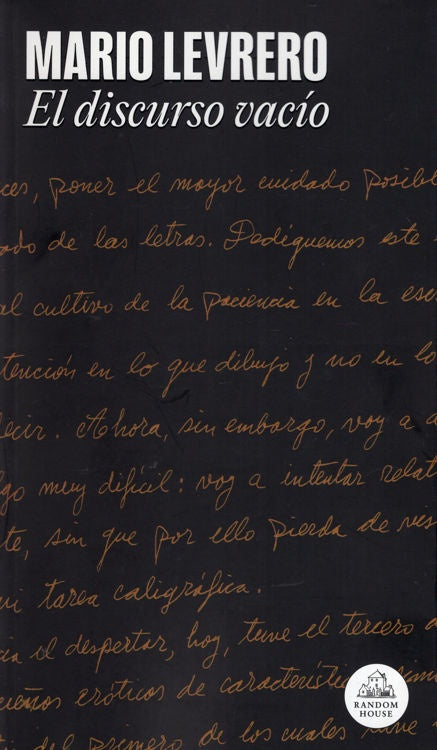 MARIO LEVRERO
El discurso vacío
ces, poner el mayor cuidado posibl
ado de las letras. Dediquemos este
al cultivo de la paciencia en la esc
tención en lo que dibujo y no en lo
decir. Ahora, sin embargo, voy a
lgo muy difícil: voy a intentar relat
te, sin que por ello pierda de vis
mi tarea caligráfica.
cia el despertar, hoy, tuve el tercero
ueños eróticos de característic
del primero de los cuales tuve
RANDOM
HOUSE